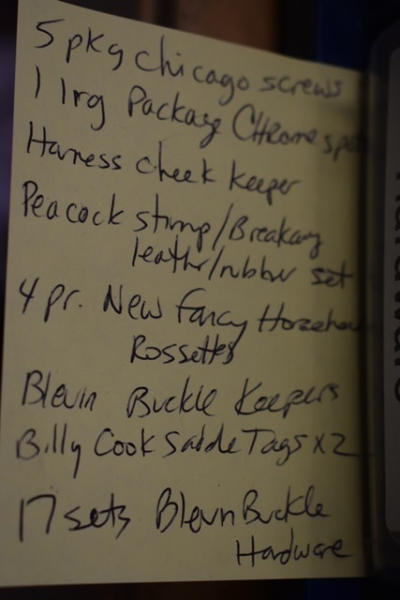 5 pkg Chicago screws
1 lrg Package Chrome
Harness cheek keeper
Peacock stirrup/Breakaway
leather/rubber set
4 pr. New Fancy
Rossettes
Blevin Buckle Keepers
Billy Cook Saddle Tags x2
17 sets Blevn Buckle
Hardware